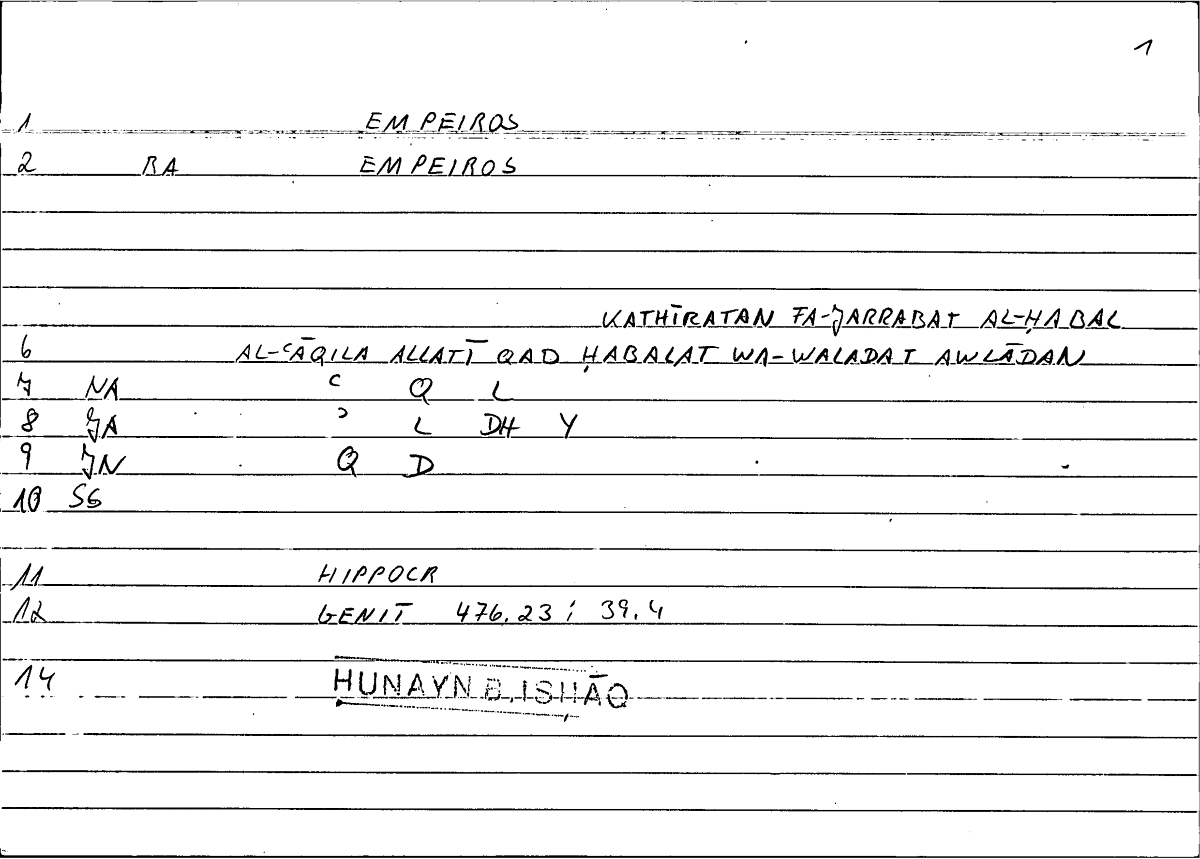 1
1 EMPEIROS
2 BA EMPEIROS
KATHĪRATAN FA-JARRABAT AL-ḤABAL
6 AL-ʿĀQILA ALLATĪ QAD ḤABALAT WA-WALADAT AWLĀDAN
7 NA ʿ Q L
8 JA ʾ L DH Y
9 JN Q D
10 SG
11 HIPPOCR
12 GENIT 476.23 ; 39.4
14 HUNAYN B. ISḤĀQ